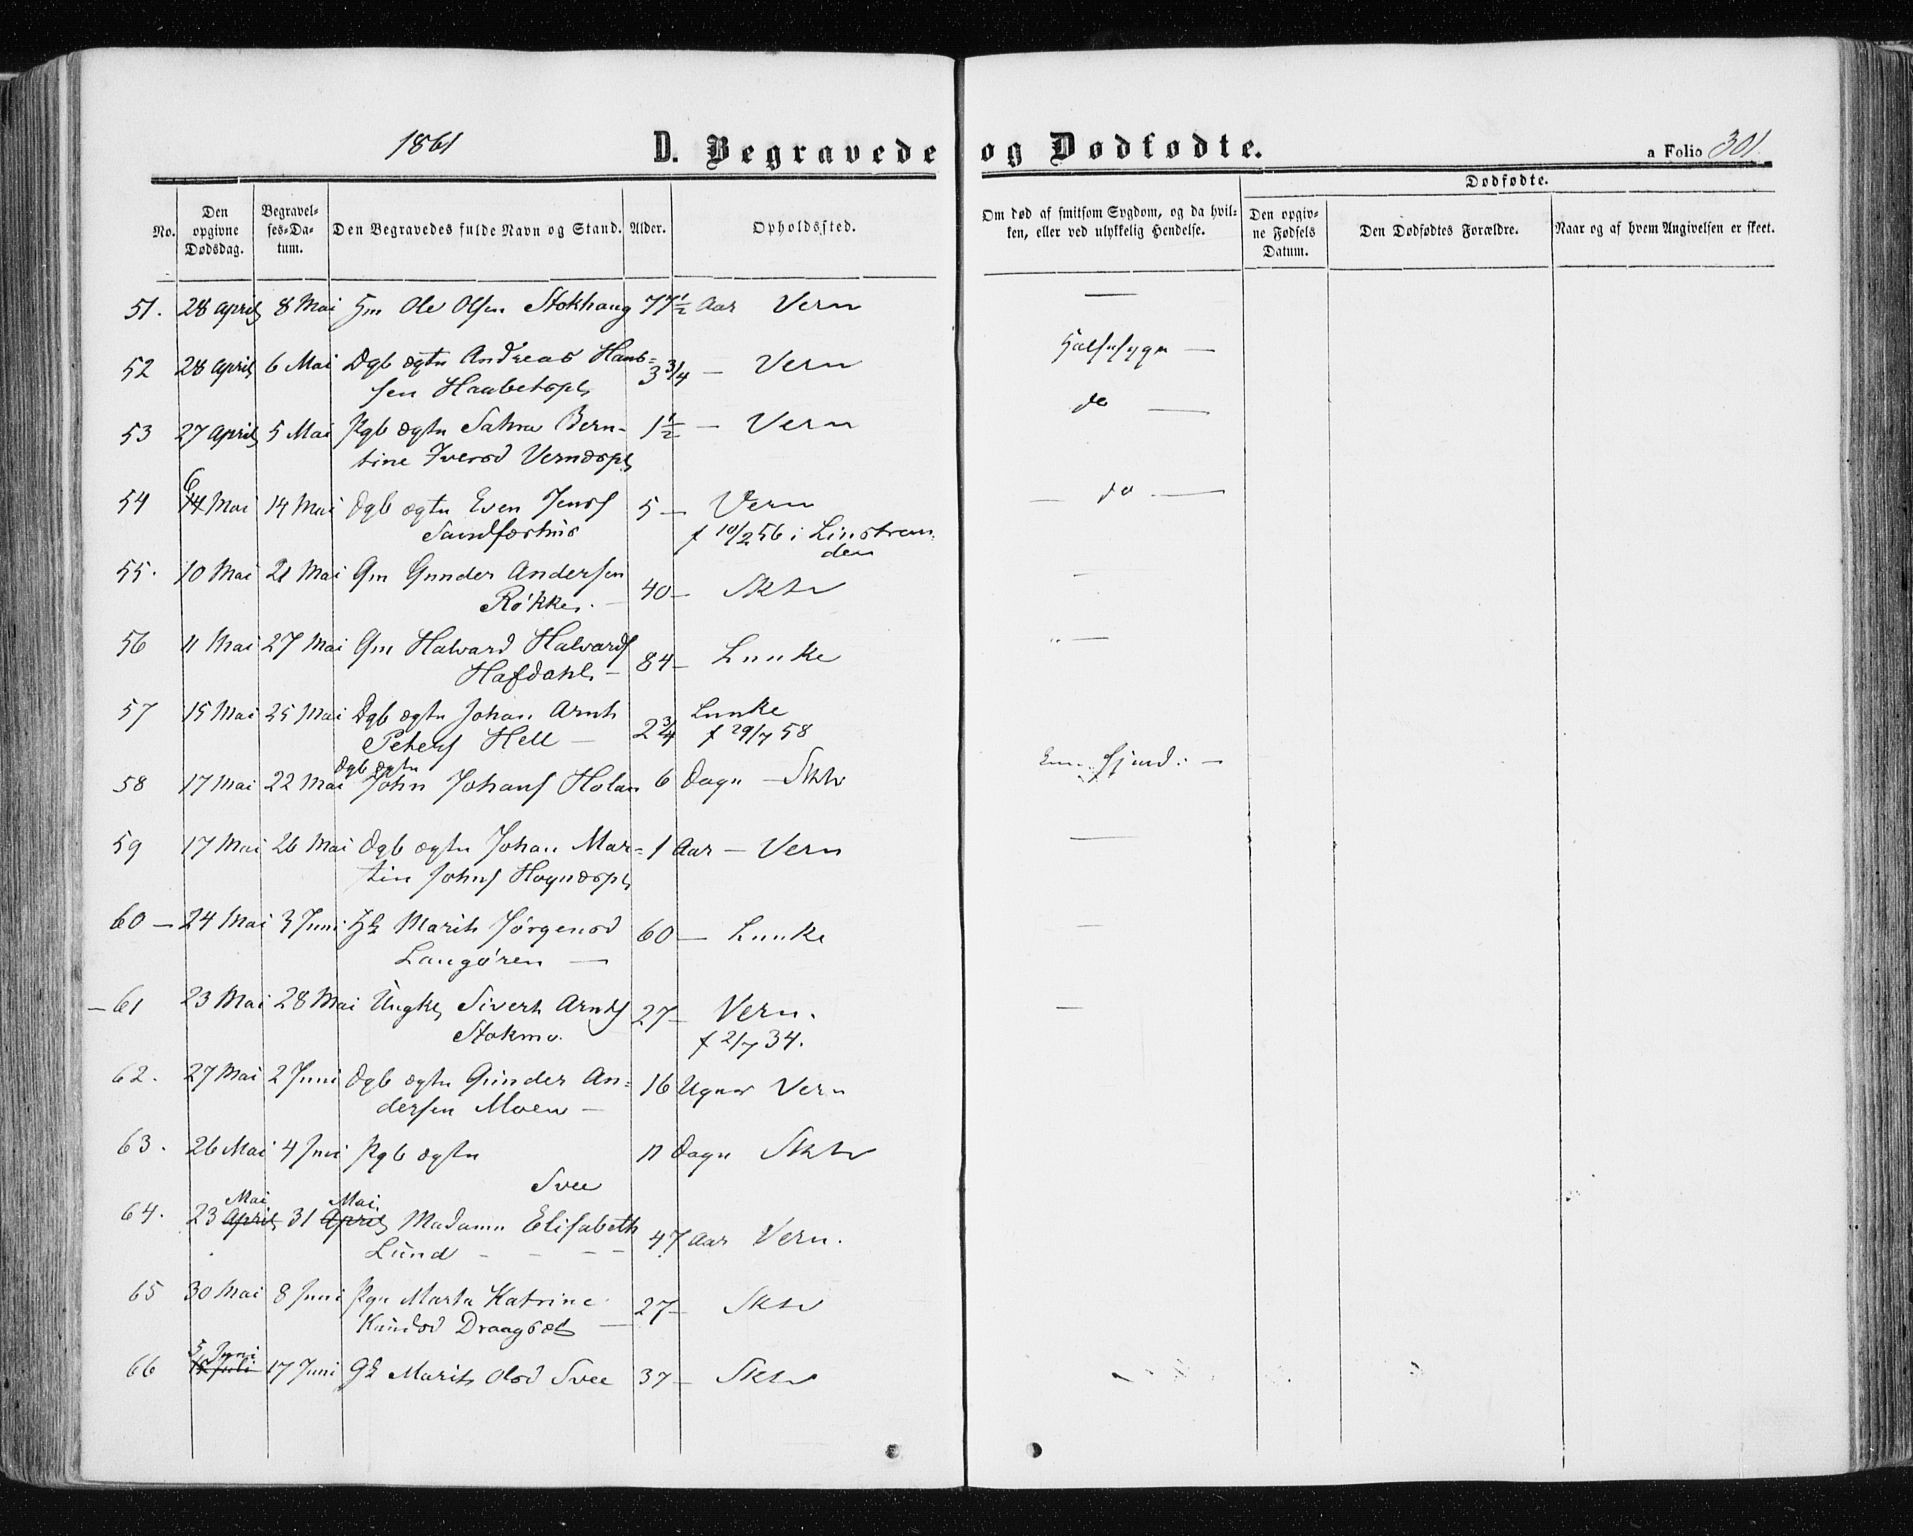 1861
D. Begravede og Dødfødte.
a Folio 301.
Dødfødte.
No.
Den opgivne Dødsdag.
Begravelses-Datum.
Den Begravedes fulde Navn og Stand.
Alder.
Opholdssted.
Om død af smitsom Sygdom, og da hvilken, eller ved ulykkelig Hendelse.
Den opgivne Fødsels Datum.
Den Dødfødtes Forældre.
Naar og af hvem Angivelsen er skeet.
51. 28 April 8 Mai Gm Ole Olsen Stokhaug 77½ Aar Vern —
52 28 April 6 Mai Dgb ægtn Andreas Hans= 3¾ — Vern Halssyge —
sen Haabetspl
53 27 April 5 Mai Pgb ægtn Bern- 1½ — Vern do —
tine Iversd Vernæspl
54 6 14 Mai 14 Mai Dgb ægtn Even Jens 5 — Vern — do —
Sandfærhus f 10/2 56 i Linstran-
den
55. 10 Mai 21 Mai Gm Gunder Andersen 40 — Sktv —
Røkke. —
56 11 Mai 27 Mai Gm Halvard Halvards 84 — Lunke —
Hafdahl —
57 15 Mai 25 Mai Dgb ægtn Johan Arnt 2¾ Lunke
Peters Hell — f 29/7 58
Dgb ægtn
58 17 Mai 22 Mai John Johans Holan 6 Dage — Sktv
59 17 Mai 26 Mai Dgb ægtn Johan Mar= 1 Aar — Vern —
tin Johns Hognæspl
60 — 24 Mai 3 Juni Marit Jørgensd 60 — Lunke —
Langøren —
— 61 23 Mai 28 Mai Ungkl Sivert Arnts 27 — Vern. —
Stokmo. f 2/7 34.
62. 27 Mai 2 Juni Dgb ægtn Gunder An= 16 Uger Vern
dersen Moen —
63. 26 Mai 4 Juni Pgb ægtn 11 Dage Sktv
Svee
Mai Mai
64. 23 April 31 April Madame Elisabeth 47 Aar Vern.
Lund — — — —
65 30 Mai 8 Juni Pge Marta Katrine 27 — Sktv
Knudsd Draagsæt —
5 Juni
66 Juli 17 Juni Marit Olsd Svee 37 — Sktv